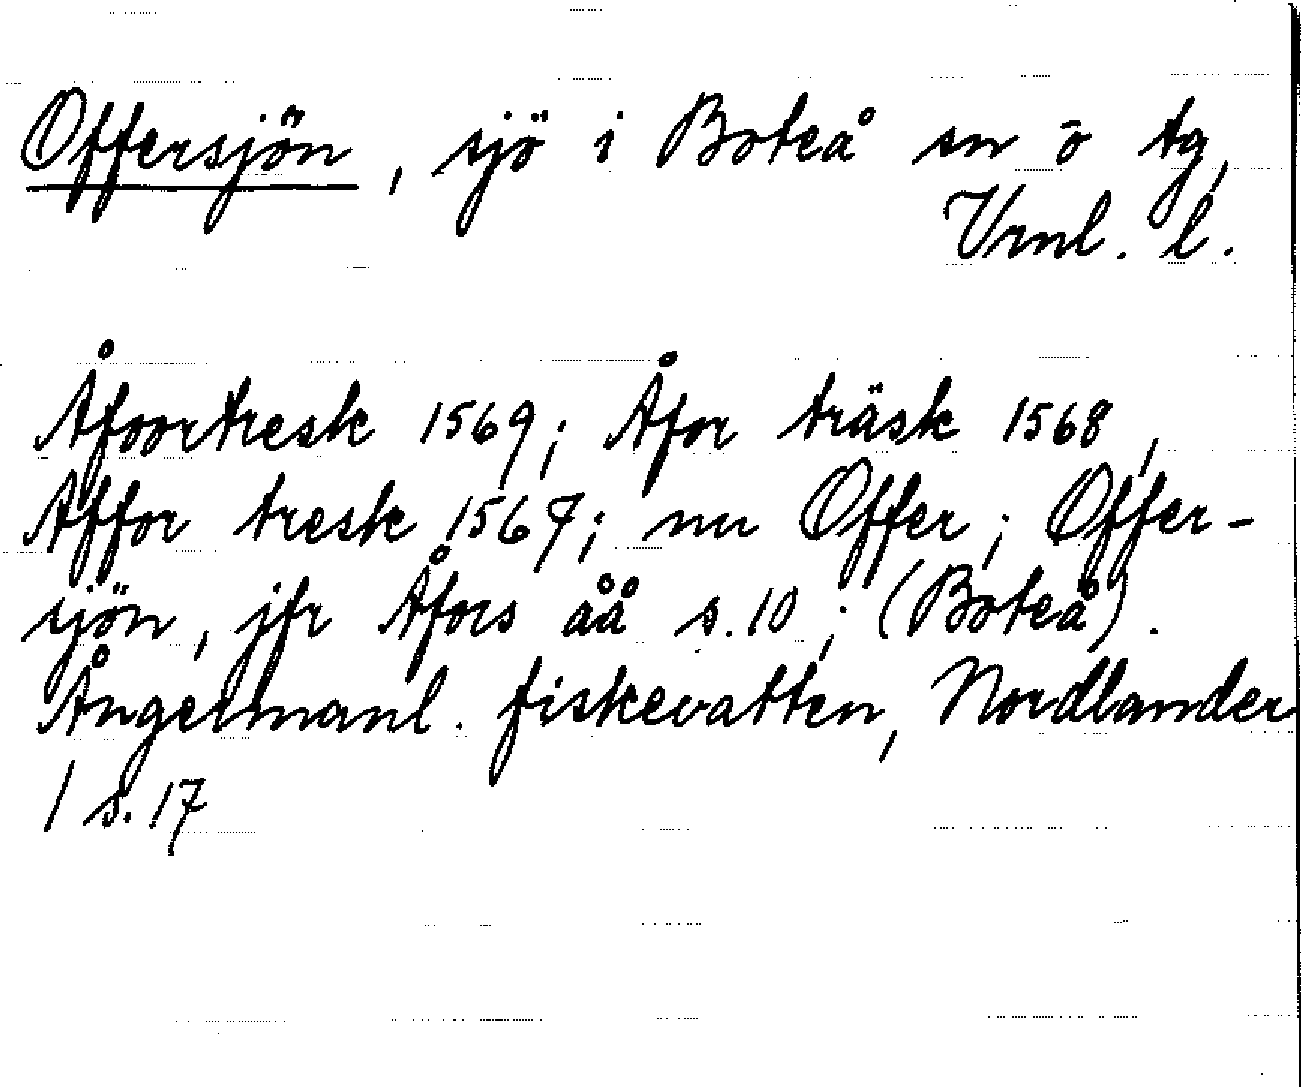 Offersjön, sjö i Boteå sn ō tg,
Vrnl. l.
Åfoortresk 1569; Åfor träsk 1568,
Affor tresk 1567; nu Offer; Offer-
sjön, jfr Åfors åå s. 10; (Boteå).
Ångermanl. fiskevatten, Nordlander
1 s. 17